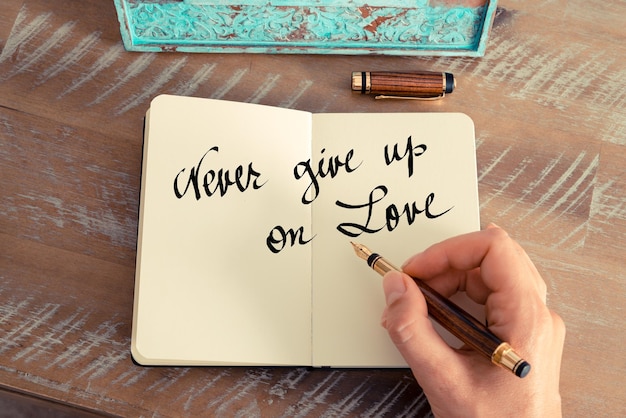 Never give up
on Love